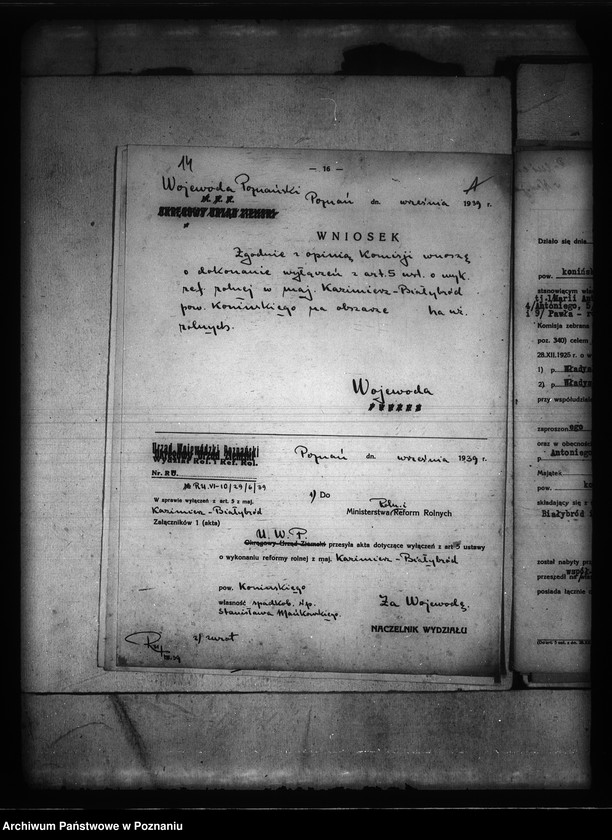 14
— 16 —
Wojewoda Poznański
Poznań dn. września 1939 r.
OKRĘGOWY URZĄD ZIEMSKI
WNIOSEK
Zgodnie z opinią Komisji wnoszę
o dokonanie wyłączeń z art. 5 ust. o wyk.
ref. rolnej w maj. Kazimierz-Białybród
pow. Konińskiego na obszarze ha uż.
rolnych.
Wojewoda
Urząd Wojewódzki Poznański
Okręgowy Urząd Ziemski
Wydział Rol. i Ref. Rol.
Poznań dn. września 1939 r.
Nr. RU.
№ RU.VI-10/29/6/39
W sprawie wyłączeń z art. 5 z maj.
Kazimierz-Białybród
Załączników 1 (akta)
1) Do
Ministerstwa Roln. i Reform Rolnych
U. W. P.
Okręgowy Urząd Ziemski przesyła akta dotyczące wyłączeń z art 5 ustawy
o wykonaniu reformy rolnej z maj. Kazimierz-Białybród
pow. Konińskiego
własność spadkob. śp.
Stanisława Mańkowskiego.
Za Wojewodę
NACZELNIK WYDZIAŁU
2) zwrot
Działo się dnia
pow. konińsk
stanowiącym wła
tj.1/Marii An
4/Antoniego, 5
i 9/ Pawła - r
Komisja zebrana
poz. 340) celem
28.XII.1925 r. o w
1) p. Władys
2) p. Władys
przy współudzial
zaproszonego
oraz w obecności
p. Antoniego
Majątek
pow. ko
składający się z
Białybród i
został nabyty prz
współ
przeszedł na wła
posiada łącznie o
Archiwum Państwowe w Poznaniu